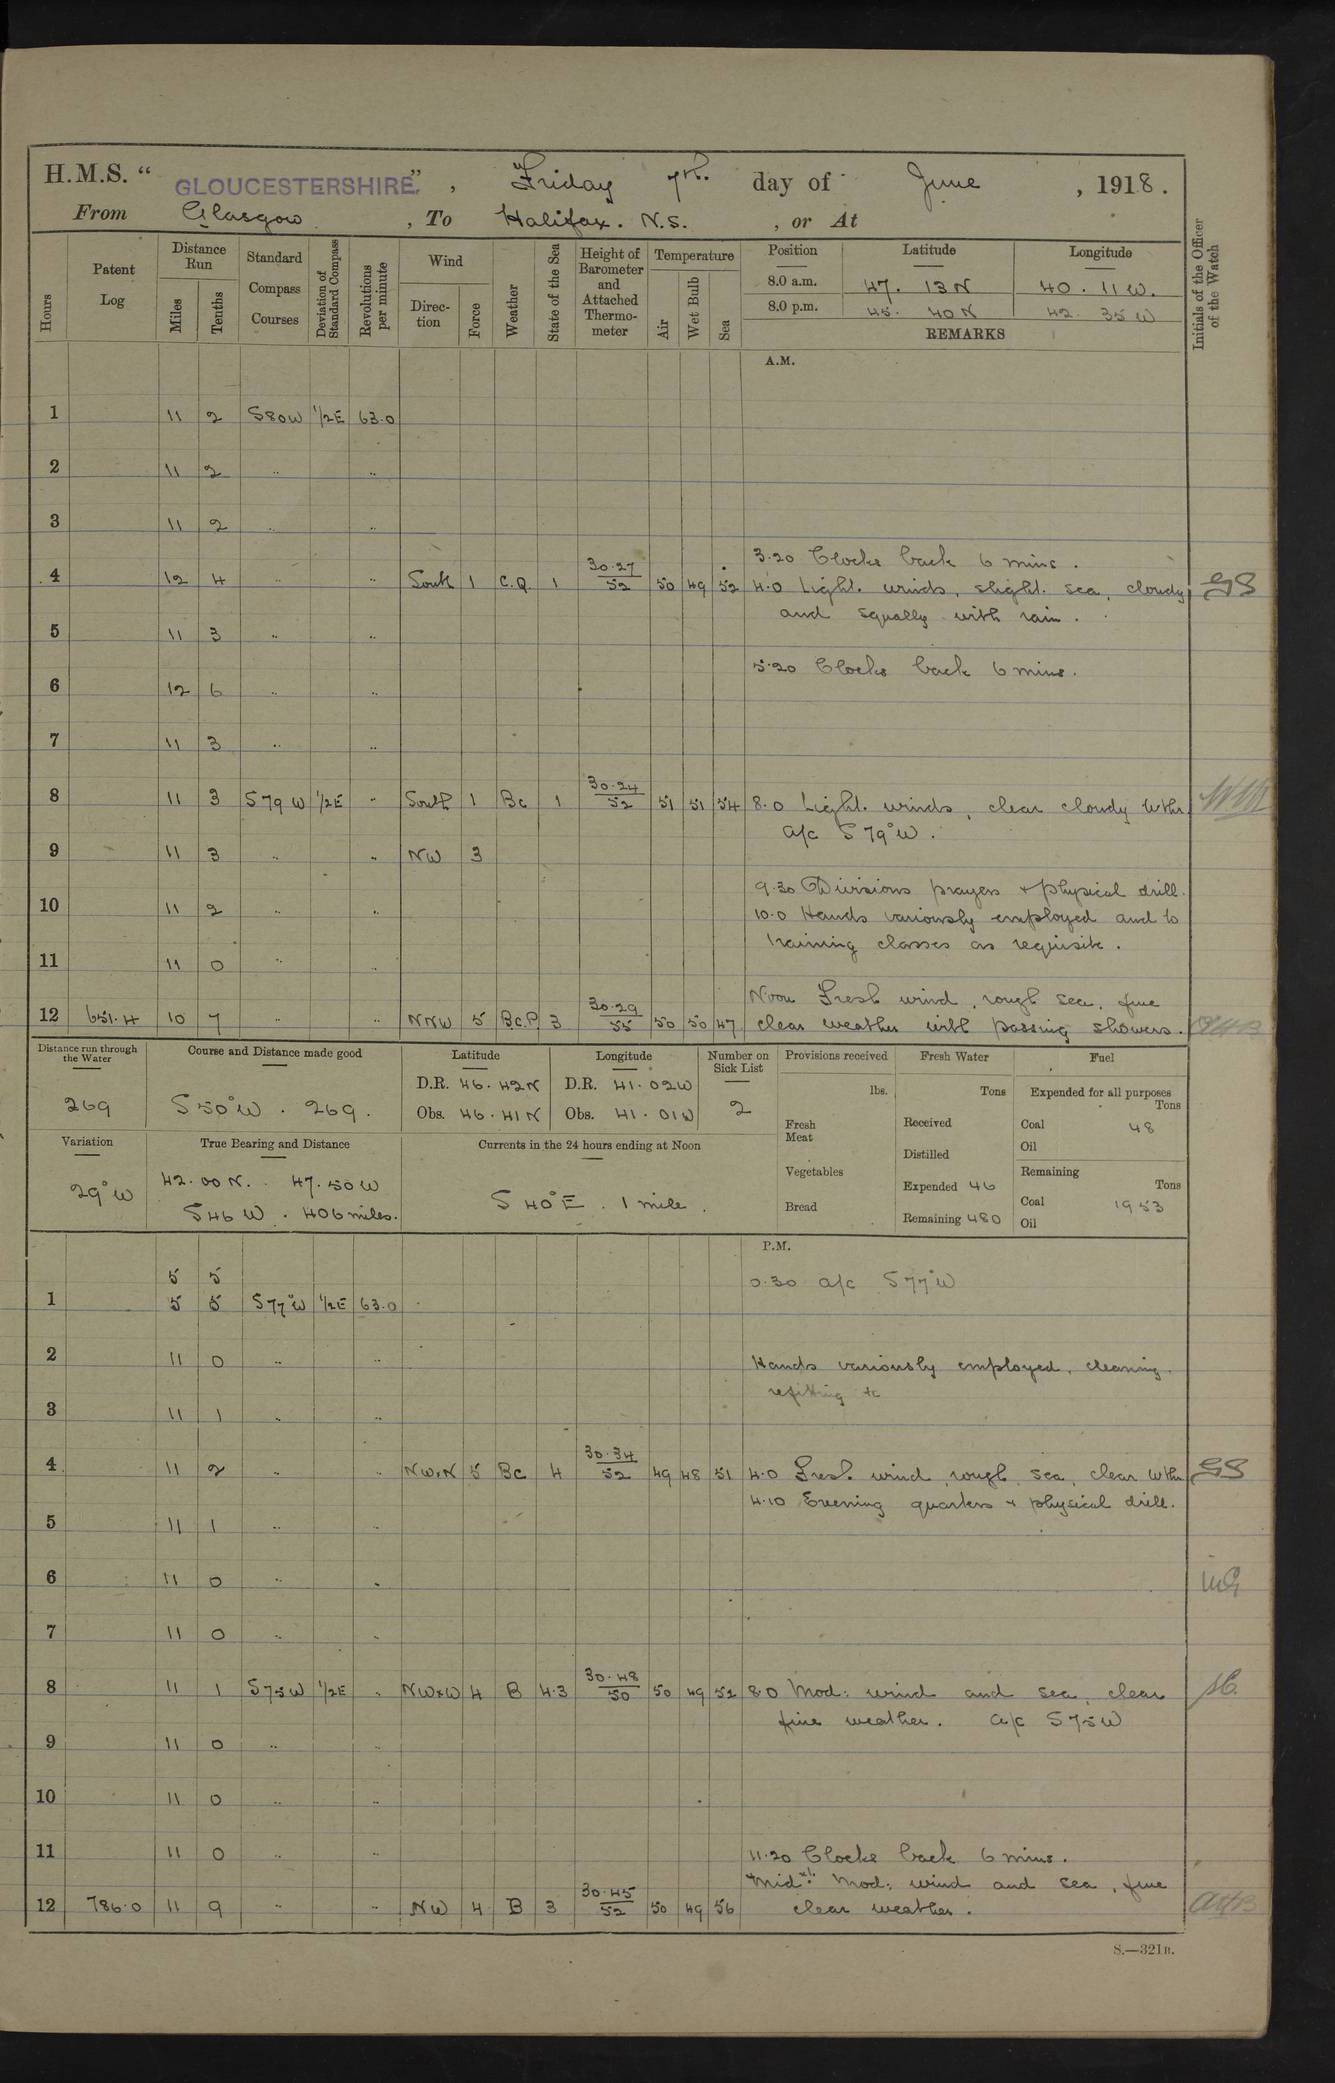 H.M.S. “ GLOUCESTERSHIRE ” , Friday 7th. day of June , 1918.
From Glasgow , To Halifax. N.S. , or At
Hours
Patent Log
Distance Run
Miles
Tenths
Standard Compass Courses
Deviation of Standard Compass
Revolutions per minute
Wind
Direction
Force
Weather
State of the Sea
Height of Barometer and Attached Thermometer
Temperature
Air
Wet Bulb
Sea
Position Latitude Longitude
8.0 a.m. 47. 13 N 40. 11 W.
8.0 p.m. 45. 40 N 42. 35 W
REMARKS
Initials of the Officer of the Watch
A.M.
1 11 2 S80W 1/2E 63.0
2 11 2 .. ..
3 11 2 .. ..
3.20 Clocks back 6 mins.
4 12 4 .. .. South 1 C.Q. 1 30.27/52 50 49 52 4.0 Light. winds, slight. sea, cloudy GS
and squally with rain.
5 11 3 .. ..
5.20 Clocks back 6 mins.
6 12 6 .. ..
7 11 3 .. ..
8 11 3 S79W 1/2E .. South 1 Bc 1 30.24/52 51 51 54 8.0 Light. winds, clear cloudy Wthr.
a/c S 79°W.
9 11 3 .. .. NW 3
9.30 Divisions prayers + physical drill.
10 11 2 .. .. 10.0 Hands variously employed and to
training classes as requisite.
11 11 0 .. ..
Noon Fresh wind, rough sea, fine
12 651.4 10 7 .. .. NNW 5 Bc.P 3 30.29/55 50 50 47 clear weather with passing showers.
Distance run through the Water 269
Course and Distance made good S 50°W . 269.
Latitude D.R. 46.42N Obs. 46.41N
Longitude D.R. 41.02W Obs. 41.01W
Number on Sick List 2
Provisions received
lbs.
Fresh Meat
Vegetables
Bread
Fresh Water
Tons
Received
Distilled
Expended 46
Remaining 480
Fuel
Expended for all purposes
Tons
Coal 48
Oil
Remaining
Tons
Coal 1953
Oil
Variation 29°W
True Bearing and Distance
42.00N. 47.50W
S46W . 406 miles.
Currents in the 24 hours ending at Noon
S 40°E . 1 mile.
P.M.
5 5 0.30 a/c S 77°W
1 5 5 S77°W 1/2E 63.0
2 11 0 .. .. Hands variously employed, cleaning.
refitting &c
3 11 1 .. ..
4 11 2 .. .. NWxN 5 Bc 4 30.34/52 49 48 51 4.0 Fresh. wind, rough sea, clear Wthr GS
4.10 Evening quarters + physical drill.
5 11 1 .. ..
6 11 0 .. ..
7 11 0 .. ..
8 11 1 S75W 1/2E .. NWxW 4 B 4.3 30.48/50 50 49 52 8.0 Mod: wind and sea, clear
fine weather. a/c S75W
9 11 0 .. ..
10 11 0 .. ..
11 11 0 .. .. 11.20 Clocks back 6 mins.
Midnt. Mod: wind and sea, fine
12 786.0 11 9 .. .. NW 4 B 3 30.45/52 50 49 56 clear weather.
S.—321B.